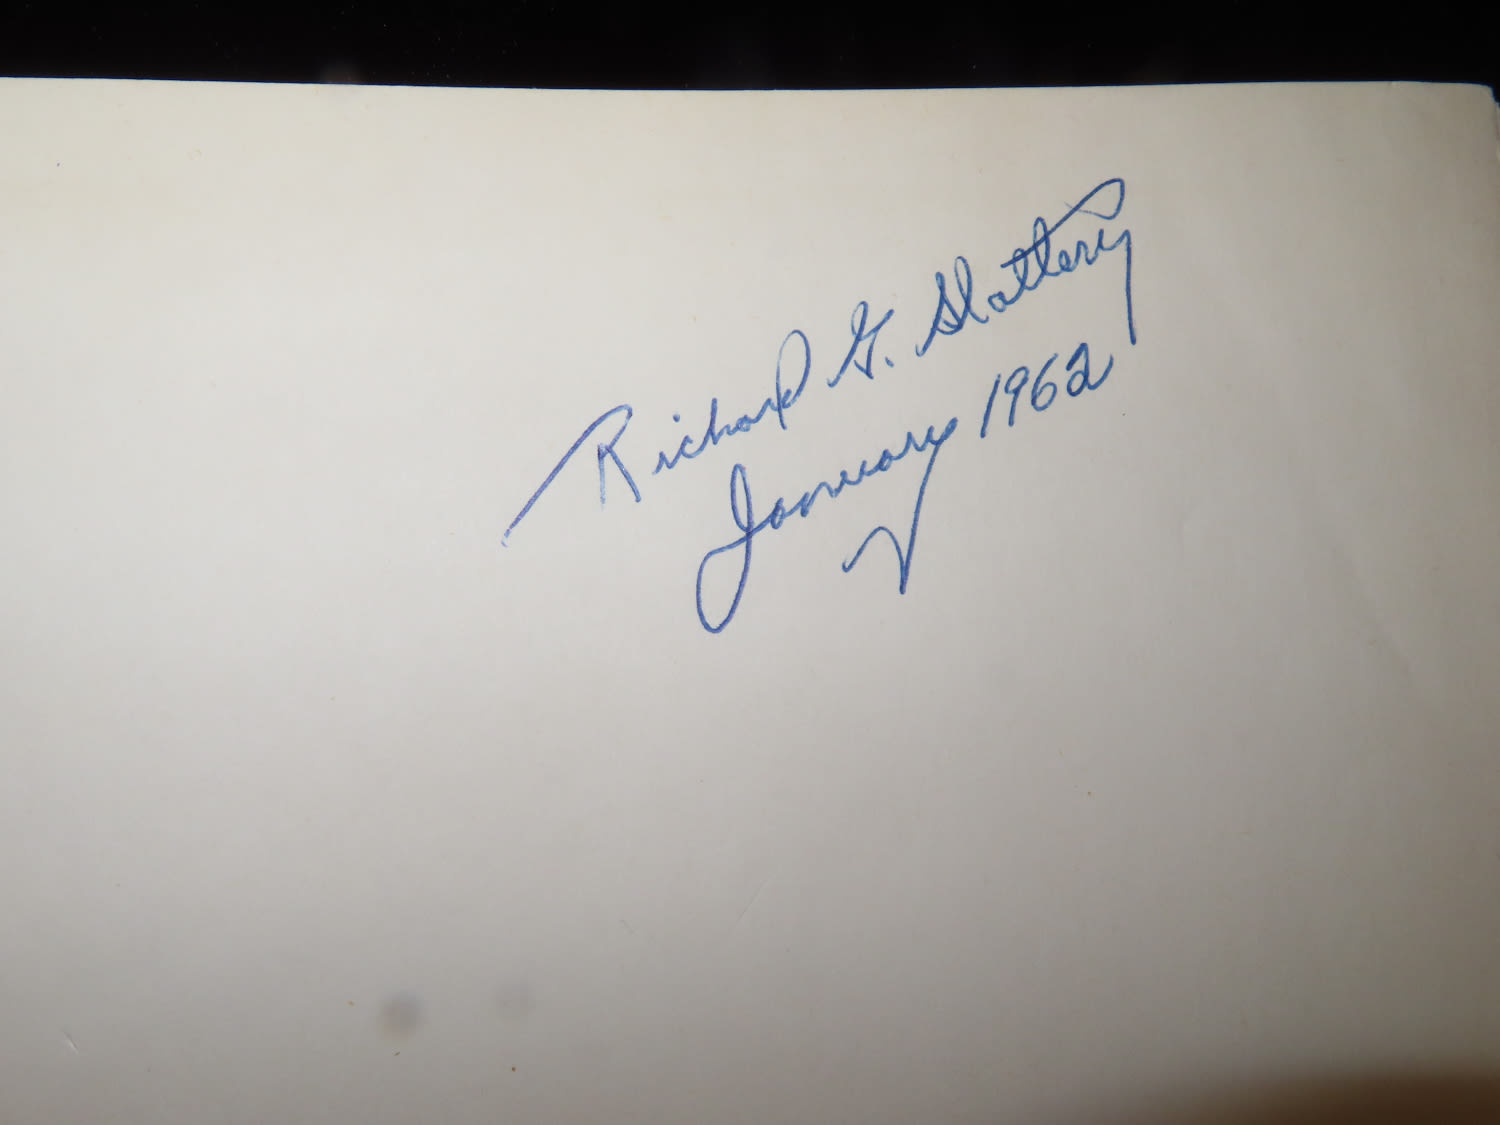 Richard G. Slattery
January 1962